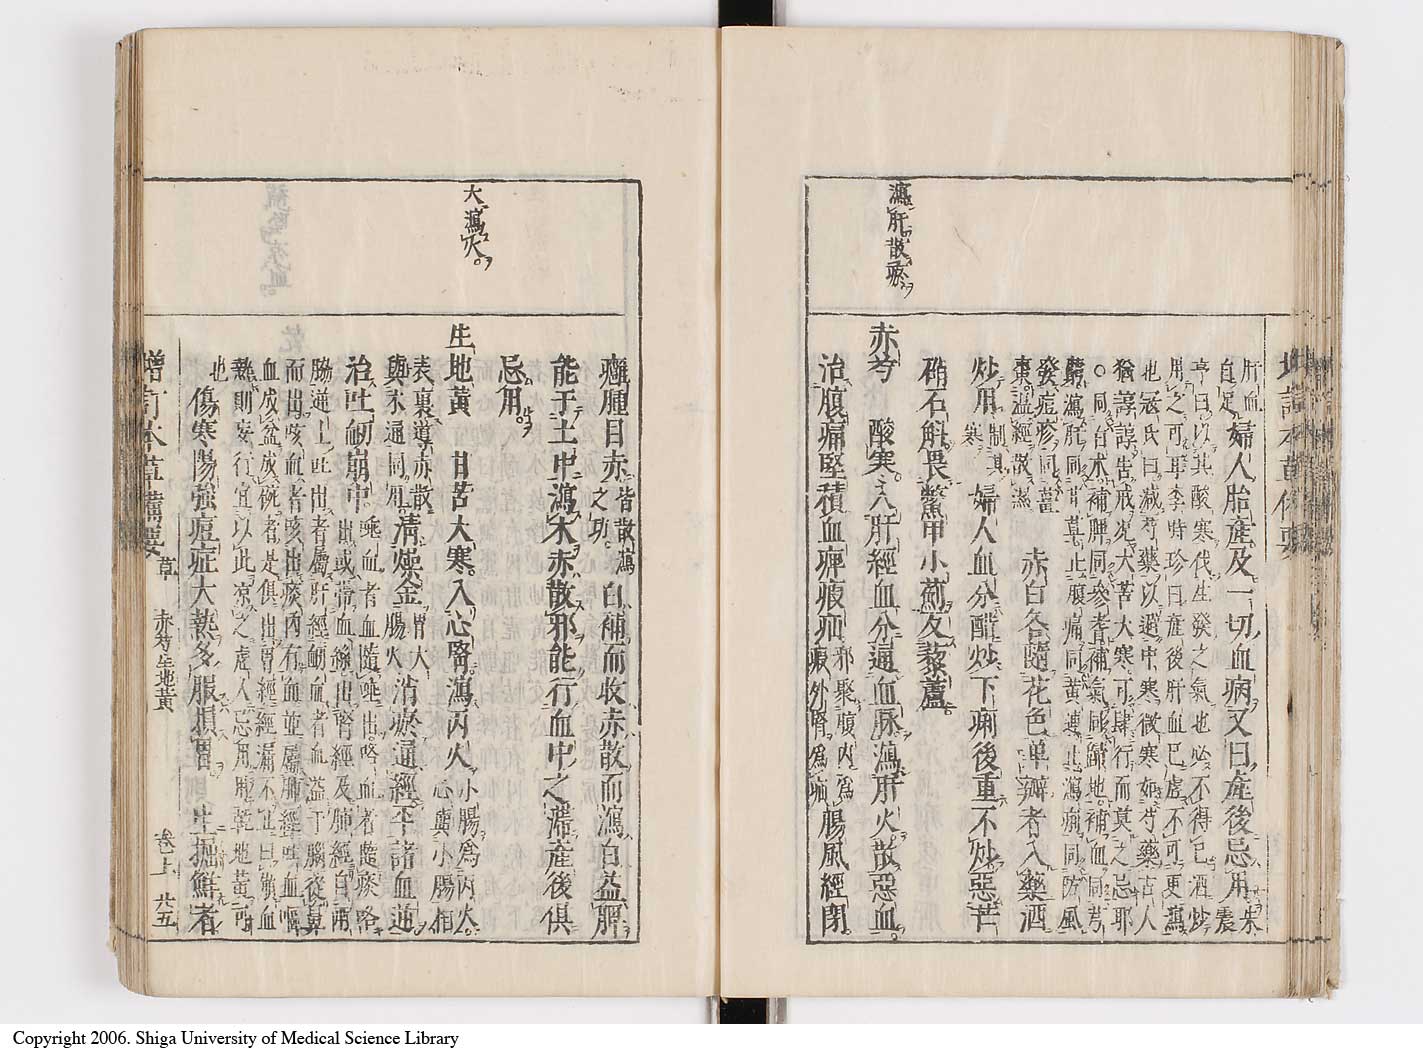 瀉肝散瘀
肝血自足婦人胎産及一切血病又曰産後忌用朱震
亨曰以其酸寒伐生發之氣也必不得已酒炒
用之可耳李時珍曰産後肝血已虚不可更瀉
也冦氏曰減芍藥以避中寒微寒如芍藥古人
猶諄諄告戒况大苦大寒可肆行而莫之忌耶
○同白木補脾同參耆補氣同歸地補血同芎
藭瀉肝同甘草止腹痛同黄連止瀉痢同防風
發痘疹同薑
棗温經散濕赤白各隨花色单瓣者入藥酒
炒用制其寒婦人血分醋炒下痢後重不炒惡芒
硝石斛畏鱉甲小薊反藜蘆
赤芍酸寒入肝經血分通血脉瀉肝火散惡血
治腹痛堅積血痺疝瘕邪聚腹内爲瘕外腎爲疝腸風經閉
大瀉火
癰腫目赤皆散瀉之功白補而收赤散而瀉白益脾
能于土中瀉木赤散邪能行血中之滯産後俱
忌用
生地黄甘苦大寒入心腎瀉丙火小腸爲丙火心與小腸相
表裏導赤散與木通同用清燥金胃大腸火消瘀通經平諸血逆
治吐衄崩中
腸逆上吐出者屬肝經衄血者血溢于腦從鼻
而出咳血者咳出痰内有血並屬肺經吐血嘔
血成盆成碗者是俱出胃經漏不止曰崩血
熱則妄行宜以此凉之虚人忌用用乾地黄可
也傷寒陽強痘症大熱多服損胃生掘鮮者
增訂本草備要
草
赤芍生地黄
卷上
廿五